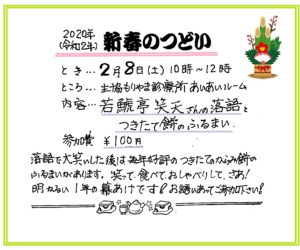 2020年
(令和2年)
新春のつどい
とき…2月8日(土)10時～12時
ところ…生協もりやま診療所 あいあいルーム
内容…若鯱亭 笑天さんの落語と
つきたて餅のふるまい
参加費 ¥100円
落語で大笑いした後は毎年好評のつきたてのからみ餅の
ふるまいがあります。笑って、食べて、おしゃべりして、さあ!
明かるい1年の幕あけです! お誘いあってご参加下さい!